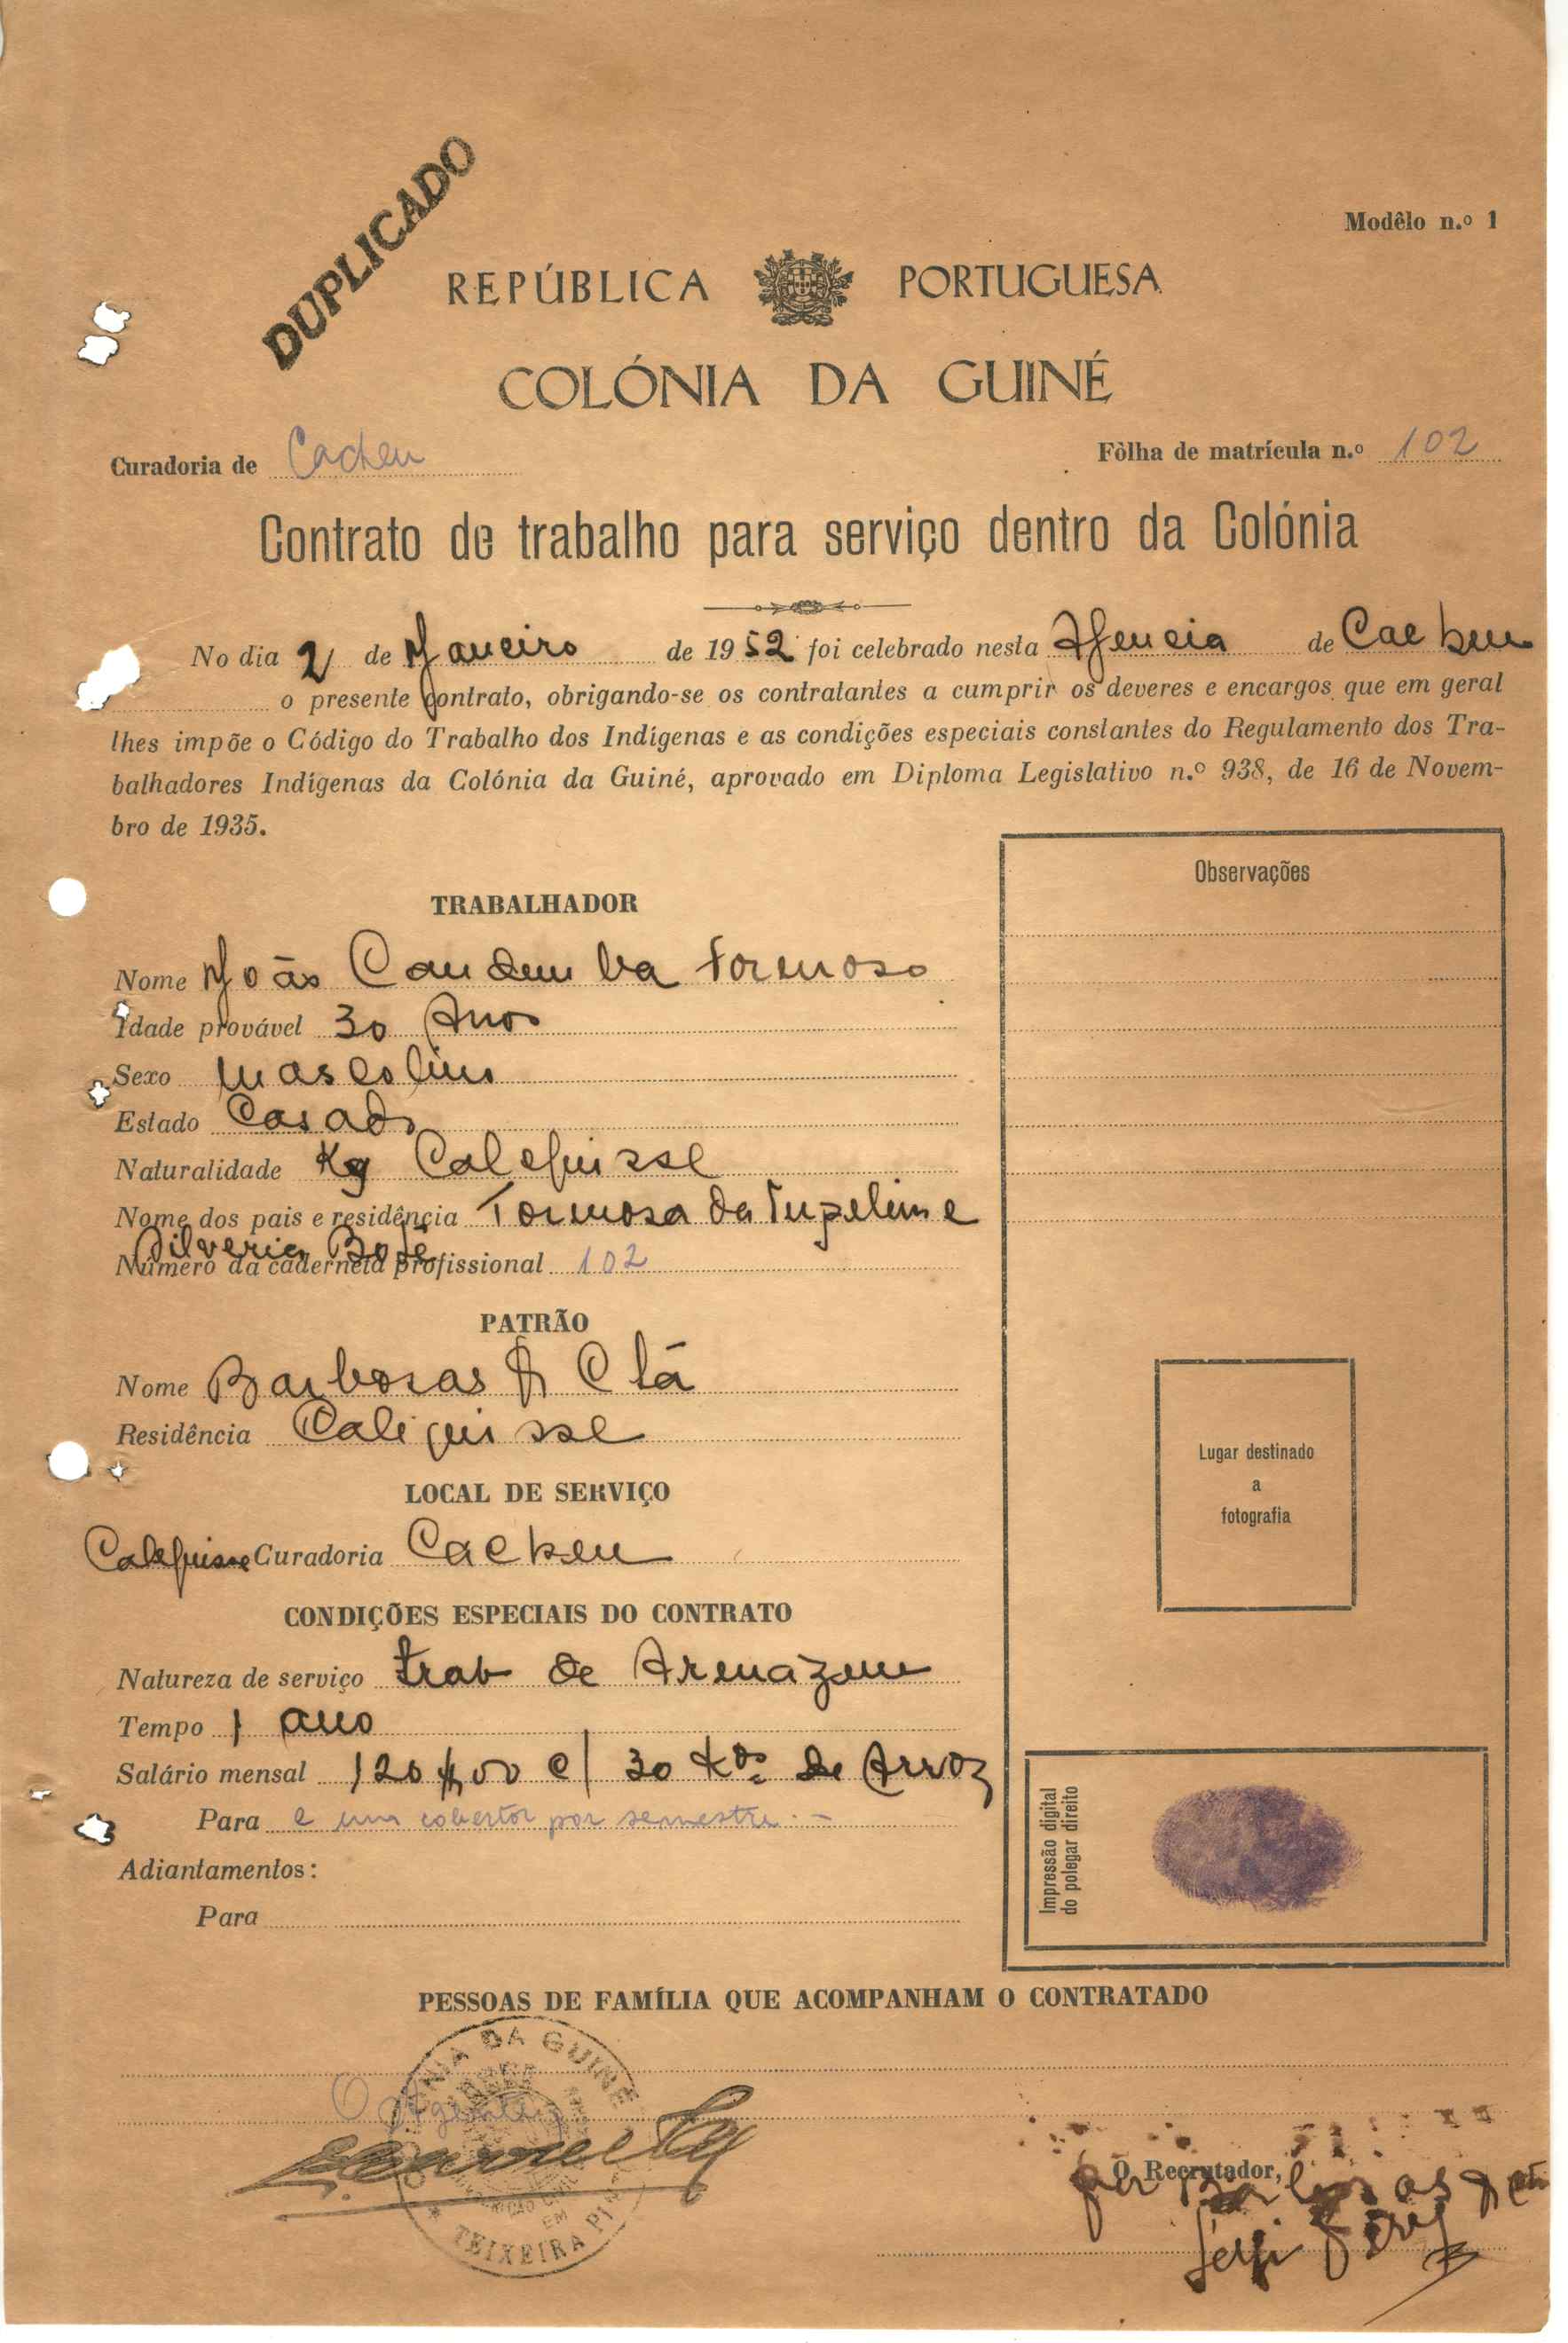 DUPLICADO
Modêlo n.º 1
REPÚBLICA PORTUGUESA
COLÓNIA DA GUINÉ
Curadoria de Cacheu
Fôlha de matrícula n.º 102
Contrato de trabalho para serviço dentro da Colónia
No dia 2 de Janeiro de 1952 foi celebrado nesta Agencia de Cacheu
o presente contrato, obrigando-se os contratantes a cumprir os deveres e encargos que em geral
lhes impõe o Código do Trabalho dos Indígenas e as condições especiais constantes do Regulamento dos Tra-
balhadores Indígenas da Colónia da Guiné, aprovado em Diploma Legislativo n.º 938, de 16 de Novem-
bro de 1935.
Observações
TRABALHADOR
Nome João Candemba Formoso
Idade provável 30 Anos
Sexo Mascolino
Estado Casado
Naturalidade Calequisse
Nome dos pais e residência Formosa da
Silveria
Número da caderneta profissional 102
PATRÃO
Nome Barbosas & Ctá
Residência Caliquisse
LOCAL DE SERVIÇO
Calequisse Curadoria Cacheu
CONDIÇÕES ESPECIAIS DO CONTRATO
Natureza de serviço trab de Armazem
Tempo 1 ano
Salário mensal 120$00 c/ 30 kos de Arroz
Para e um cobertor por semestre.-
Adiantamentos:
Para
Lugar destinado
a
fotografia
Impressão digital
do polegar direito
PESSOAS DE FAMÍLIA QUE ACOMPANHAM O CONTRATADO
DA GUINÉ
O Agente
EM
TEIXEIRA PI
O Recrutador,
por Barbosas &